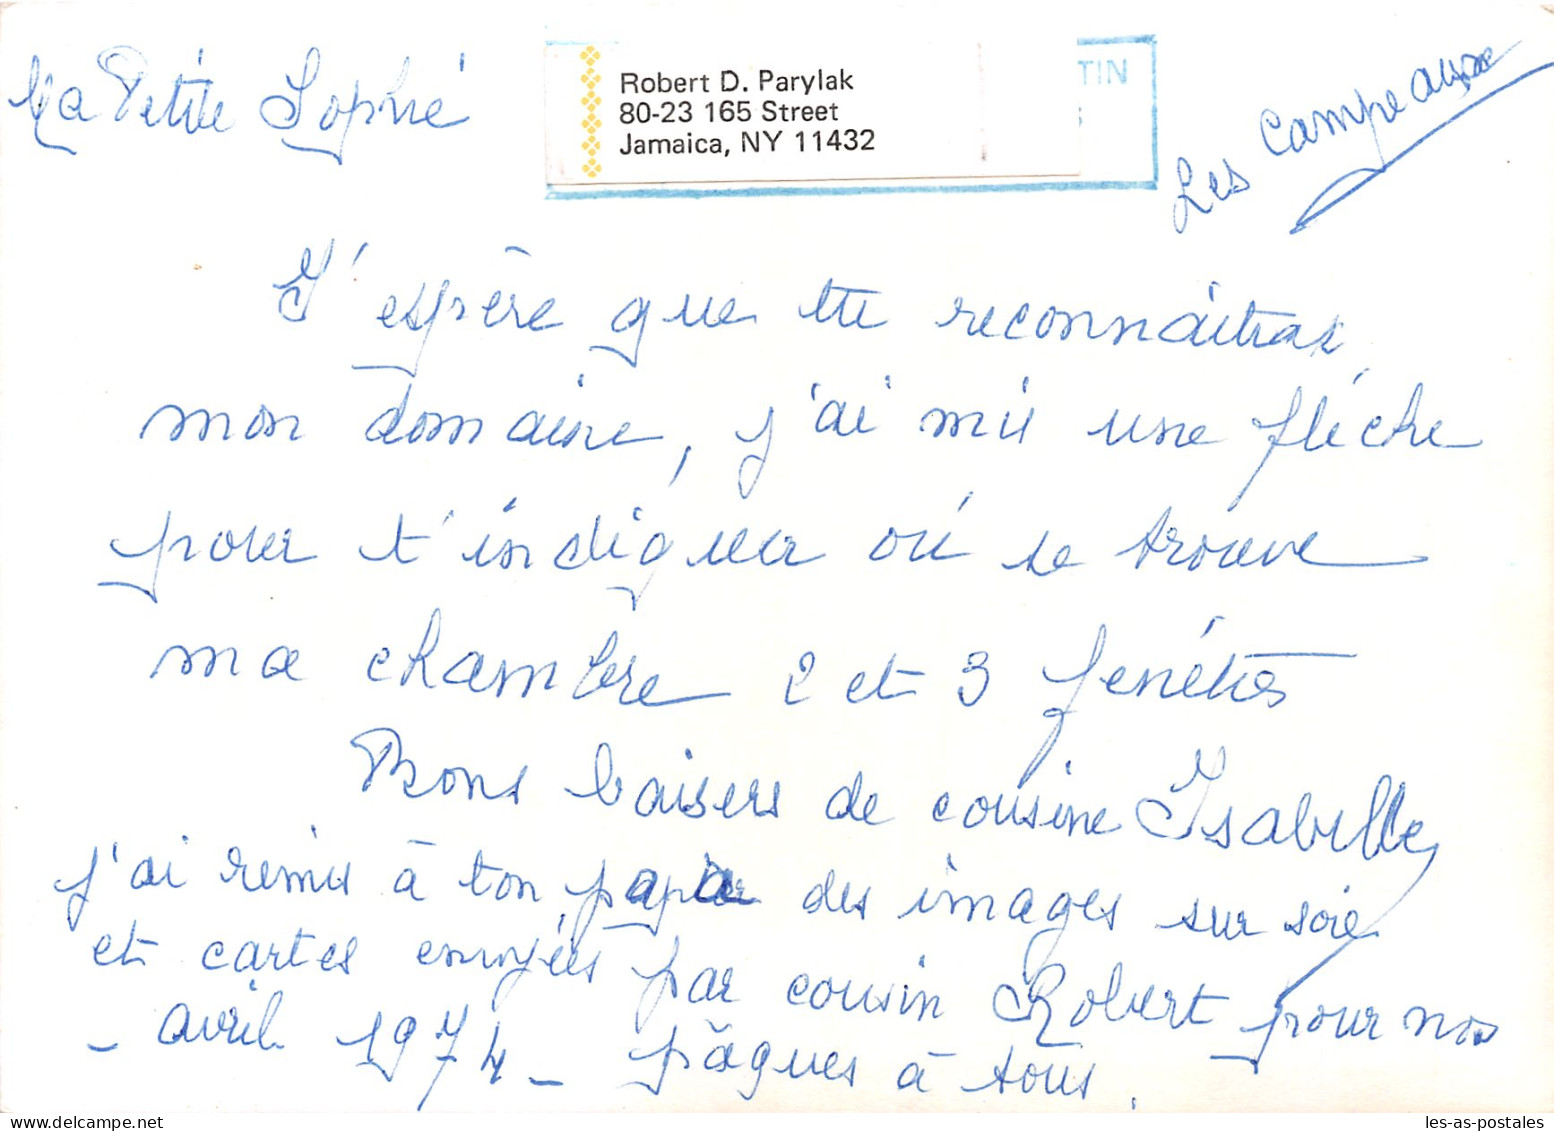 Ma Petite Sophie
Robert D. Parylak
80-23 165 Street
Jamaica, NY 11432
TIN
Les Campeaux
J'espère que tu reconnaîtras
mon domaine, j'ai mis une flèche
pour t'indiquer où se trouve
ma chambre 2 et 3 fenêtres
Bons baisers de cousine Isabelle
j'ai remis à ton papa des images sur soie
et cartes envoyées par cousin Robert pour nos
- avril 1974 - pâques à tous.
les-as-postales